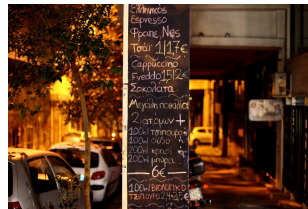 Ελληνικός
Espresso
Φραπέ, Nes
Τσάι 1|1,7€
Cappuccino
Freddo 1,5|2€
Σοκολάτα
Μεγάλη ποικιλία
2 ατόμων +
100ml τσίπουρο
100ml ούζο
200ml κρασί
200ml μπύρα
6€
100ml Βιολογικό
τσίπουρο